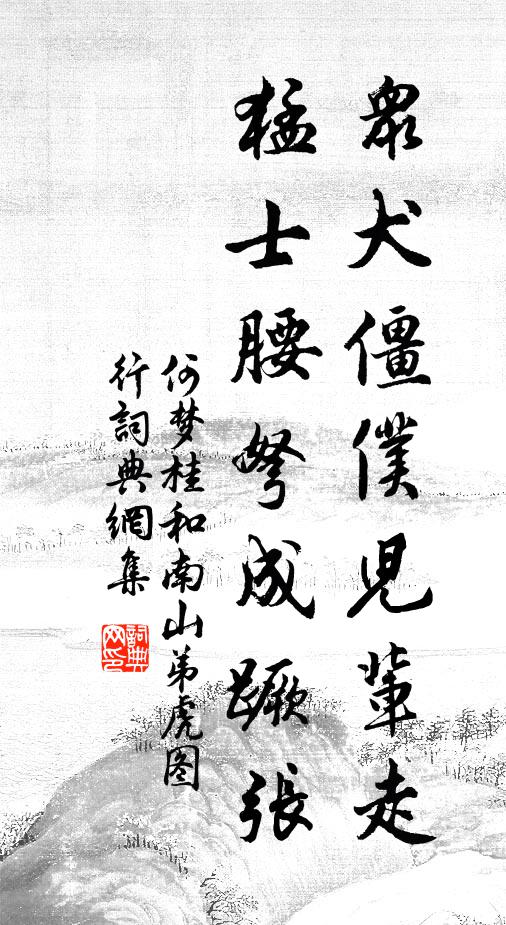 眾犬僵僕兒輩走
猛士腰弩成蹶張
何梦桂和南山弟虎图
行詞典網集
詞典網印